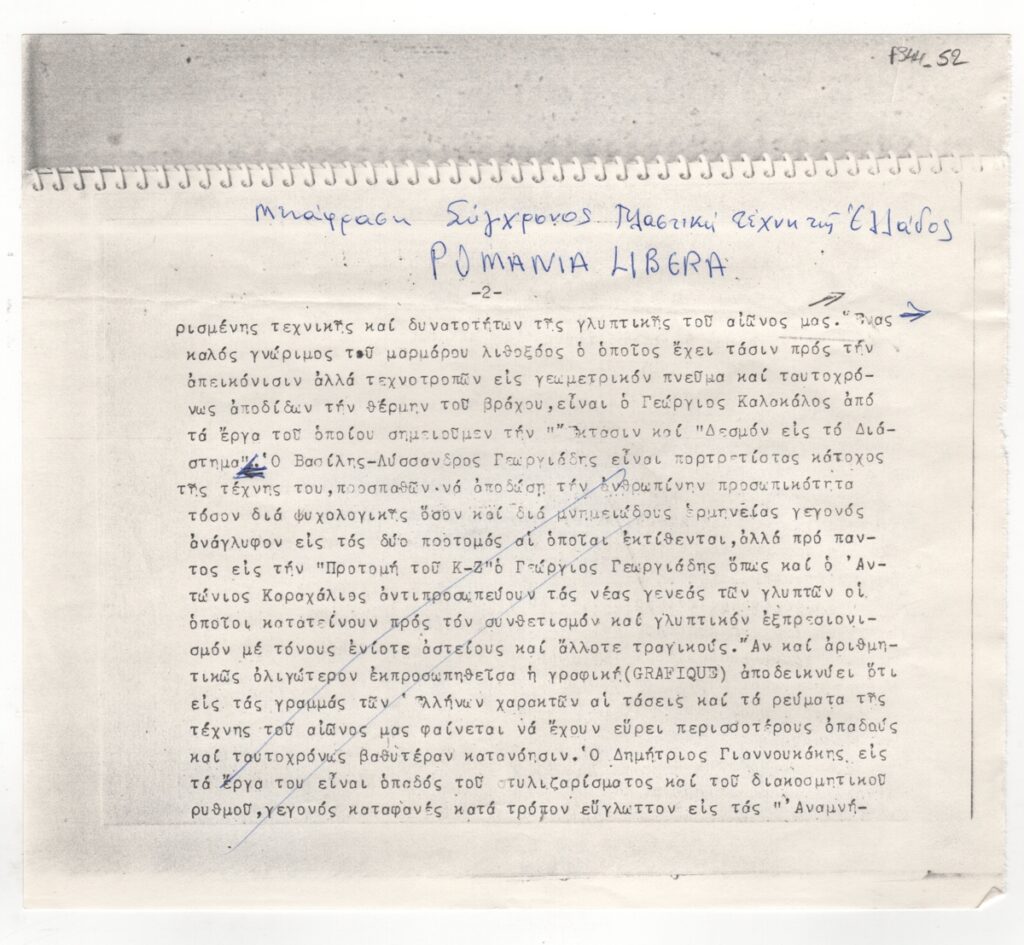 52
Μετάφραση Σύγχρονος Πλαστική τέχνη της Ἑλλάδος
ROMANIA LIBERA
-2-
ρισμένης τεχνικῆς καί δυνατοτήτων τῆς γλυπτικῆς τοῦ αἰῶνος μας. Ἕνας
καλός γνώριμος τοῦ μαρμάρου λιθοξόος ὁ ὁποῖος ἔχει τάσιν πρός τήν
ἀπεικόνισιν ἀλλά τεχνοτροπῶν εἰς γεωμετρικόν πνεῦμα καί ταυτοχρό-
νως ἀποδίδων τήν θέρμην τοῦ βράχου,εἶναι ὁ Γεώργιος Καλακάλος ἀπό
τά ἔργα τοῦ ὁποίου σημειοῦμεν τήν "Ἔκτασιν καί "Δεσμόν εἰς τό Διά-
στημα".Ὁ Βασίλης-Λύσσανδρος Γεωργιάδης εἶναι πορτρετίστας κάτοχος
τῆς τέχνης του,προσπαθῶν νά ἀποδώσῃ τήν ἀνθρωπίνην προσωπικότητα
τόσον διά ψυχολογικῆς ὅσον καί διά μνημειώδους ἑρμηνείας γεγονός
ἀνάγλυφον εἰς τάς δύο προτομάς αἱ ὁποῖαι ἐκτίθενται,ἀλλά πρό παν-
τος εἰς τήν "Προτομή τοῦ Κ-Ζ"ὁ Γεώργιος Γεωργιάδης ὅπως καί ὁ Ἀν-
τώνιος Καραχάλιος ἀντιπροσωπεύουν τάς νέας γενεάς τῶν γλυπτῶν οἱ
ὁποῖοι κατατείνουν πρός τόν συνθετισμόν καί γλυπτικόν ἐξπρεσιονι-
σμόν μέ τόνους ἐνίοτε ἀστείους καί ἄλλοτε τραγικούς. Ἄν καί ἀριθμη-
τικῶς ὀλιγώτερον ἐκπροσωπηθεῖσα ἡ γραφική(GRAFIQUE) ἀποδεικνύει ὅτι
εἰς τάς γραμμάς τῶν Ἑλλήνων χαρακτῶν αἱ τάσεις καί τά ρεύματα τῆς
τέχνης τοῦ αἰῶνος μας φαίνεται νά ἔχουν εὕρει περισσοτέρους ὀπαδούς
καί ταυτοχρόνως βαθυτέραν κατανόησιν.Ὁ Δημήτριος Γιαννουκάκης εἰς
τά ἔργα του εἶναι ὀπαδός τοῦ στυλιζαρίσματος καί τοῦ διακοσμητικοῦ
ρυθμοῦ,γεγονός καταφανές κατά τρόπον εὔγλωττον εἰς τάς "Ἀναμνή-